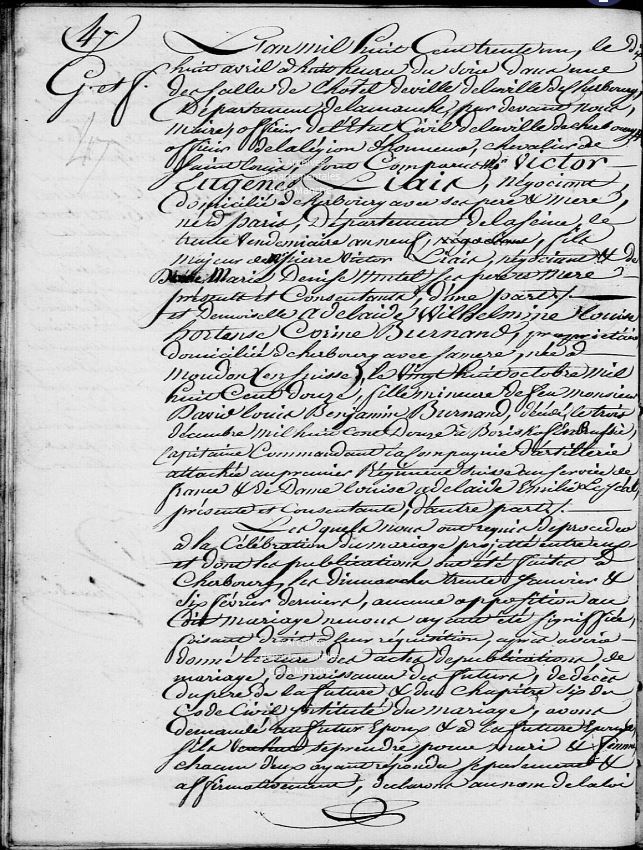 47
G. et f.
L'an mil huit Cent trente un, le dix
huit avril à huit heures du soir dans une
des salles de l'hotel deville delaville de Cherbourg,
Département delamanche, par devant nous
maire, officier de l'Etat Civil delaville de cherbourg
officier delalégion d'honneur, chevalier de
saint louis, sont Comparus Mr Victor
Eugène Liais, négociant
domicilié à cherbourg avec ses père & mère,
né à Paris, Département de laseine, le
trente vendemiaire an neuf, fils
majeur de Mr pierre Victor Liais, négociant & de
Dame Marie Denise Montel ses père & mère
présents et Consentants, d'une part./.
et demoiselle adelaïde Wilhelmine louise
hortense Corine Burnand, propriétaire
domiciliée à cherbourg avec samère, née à
moudon (en suisse), le vingt huit octobre mil
huit Cent douze, fille mineure de feu monsieur
David louis Benjamin Burnand, décédé le trois
décembre mil huit cent Douze à Boriskoff en Russie,
capitaine Commandant la Compagnie d'artillerie
attachée au premier Régiment suisse au service de
france & de Dame louise adelaïde Emilie
présente et consentante, d'autre part./.
Les quels nous ont requis de procéder
à la Célébration du mariage projetté entre eux
et dont les publications ont été faites à
Cherbourg, les dimanches trente Janvier &
six février derniers, aucune opposition au
dit mariage ne nous ayant été signiffiée,
faisant droit à leur réquisition, après avoir
donné lecture des actes de publications de
mariage, de naissance des futurs, de décès
du père de la future & du Chapitre six du
Code Civil intitulé du mariage, avons
demandé au futur Epoux & à la future Epouse,
s'ils veulent se prendre pour mari & femme
chacun d'eux ayant répondu séparément &
affirmativement, déclarons au nom de la loi
© Archives
départementales
de la Manche
© Archives
départementales
de la Manche